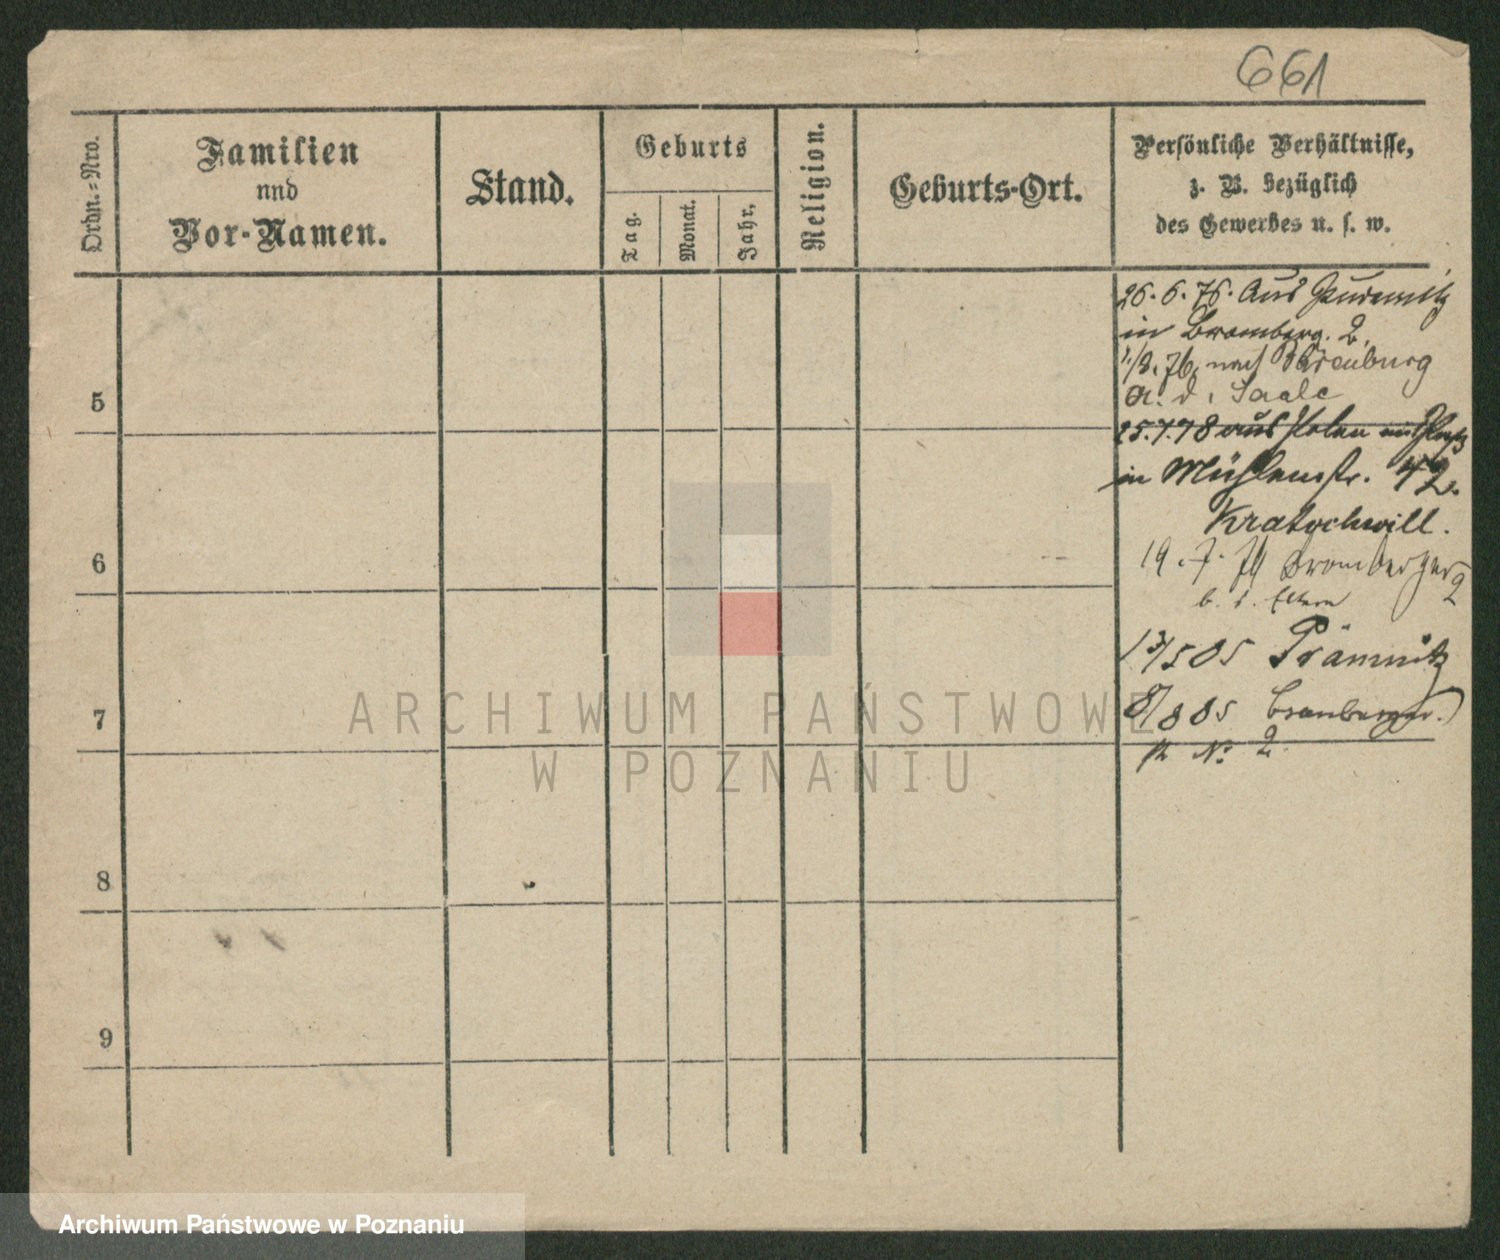 661
Ordn.=Nro.
Familien
und
Vor-Namen.
Stand.
Geburts
Tag.
Monat.
Jahr.
Religion.
Geburts-Ort.
Persönliche Verhältnisse,
z. B. bezüglich
des Gewerbes u. s. w.
26. 6. 76. Aus
in Bromberg. 2.
1/8. 76. nach
a. d. Saale
5
25.7.78 aus
in Mühlenstr. 42.
Kratochwill.
19. 7. 79 Bromberger 2
6
b. d. Eltern
13/5 85 Prämnitz
7
8/8 85 Bromberger
No 2.
8
9
ARCHIWUM PAŃSTWOWE
W POZNANIU
Archiwum Państwowe w Poznaniu